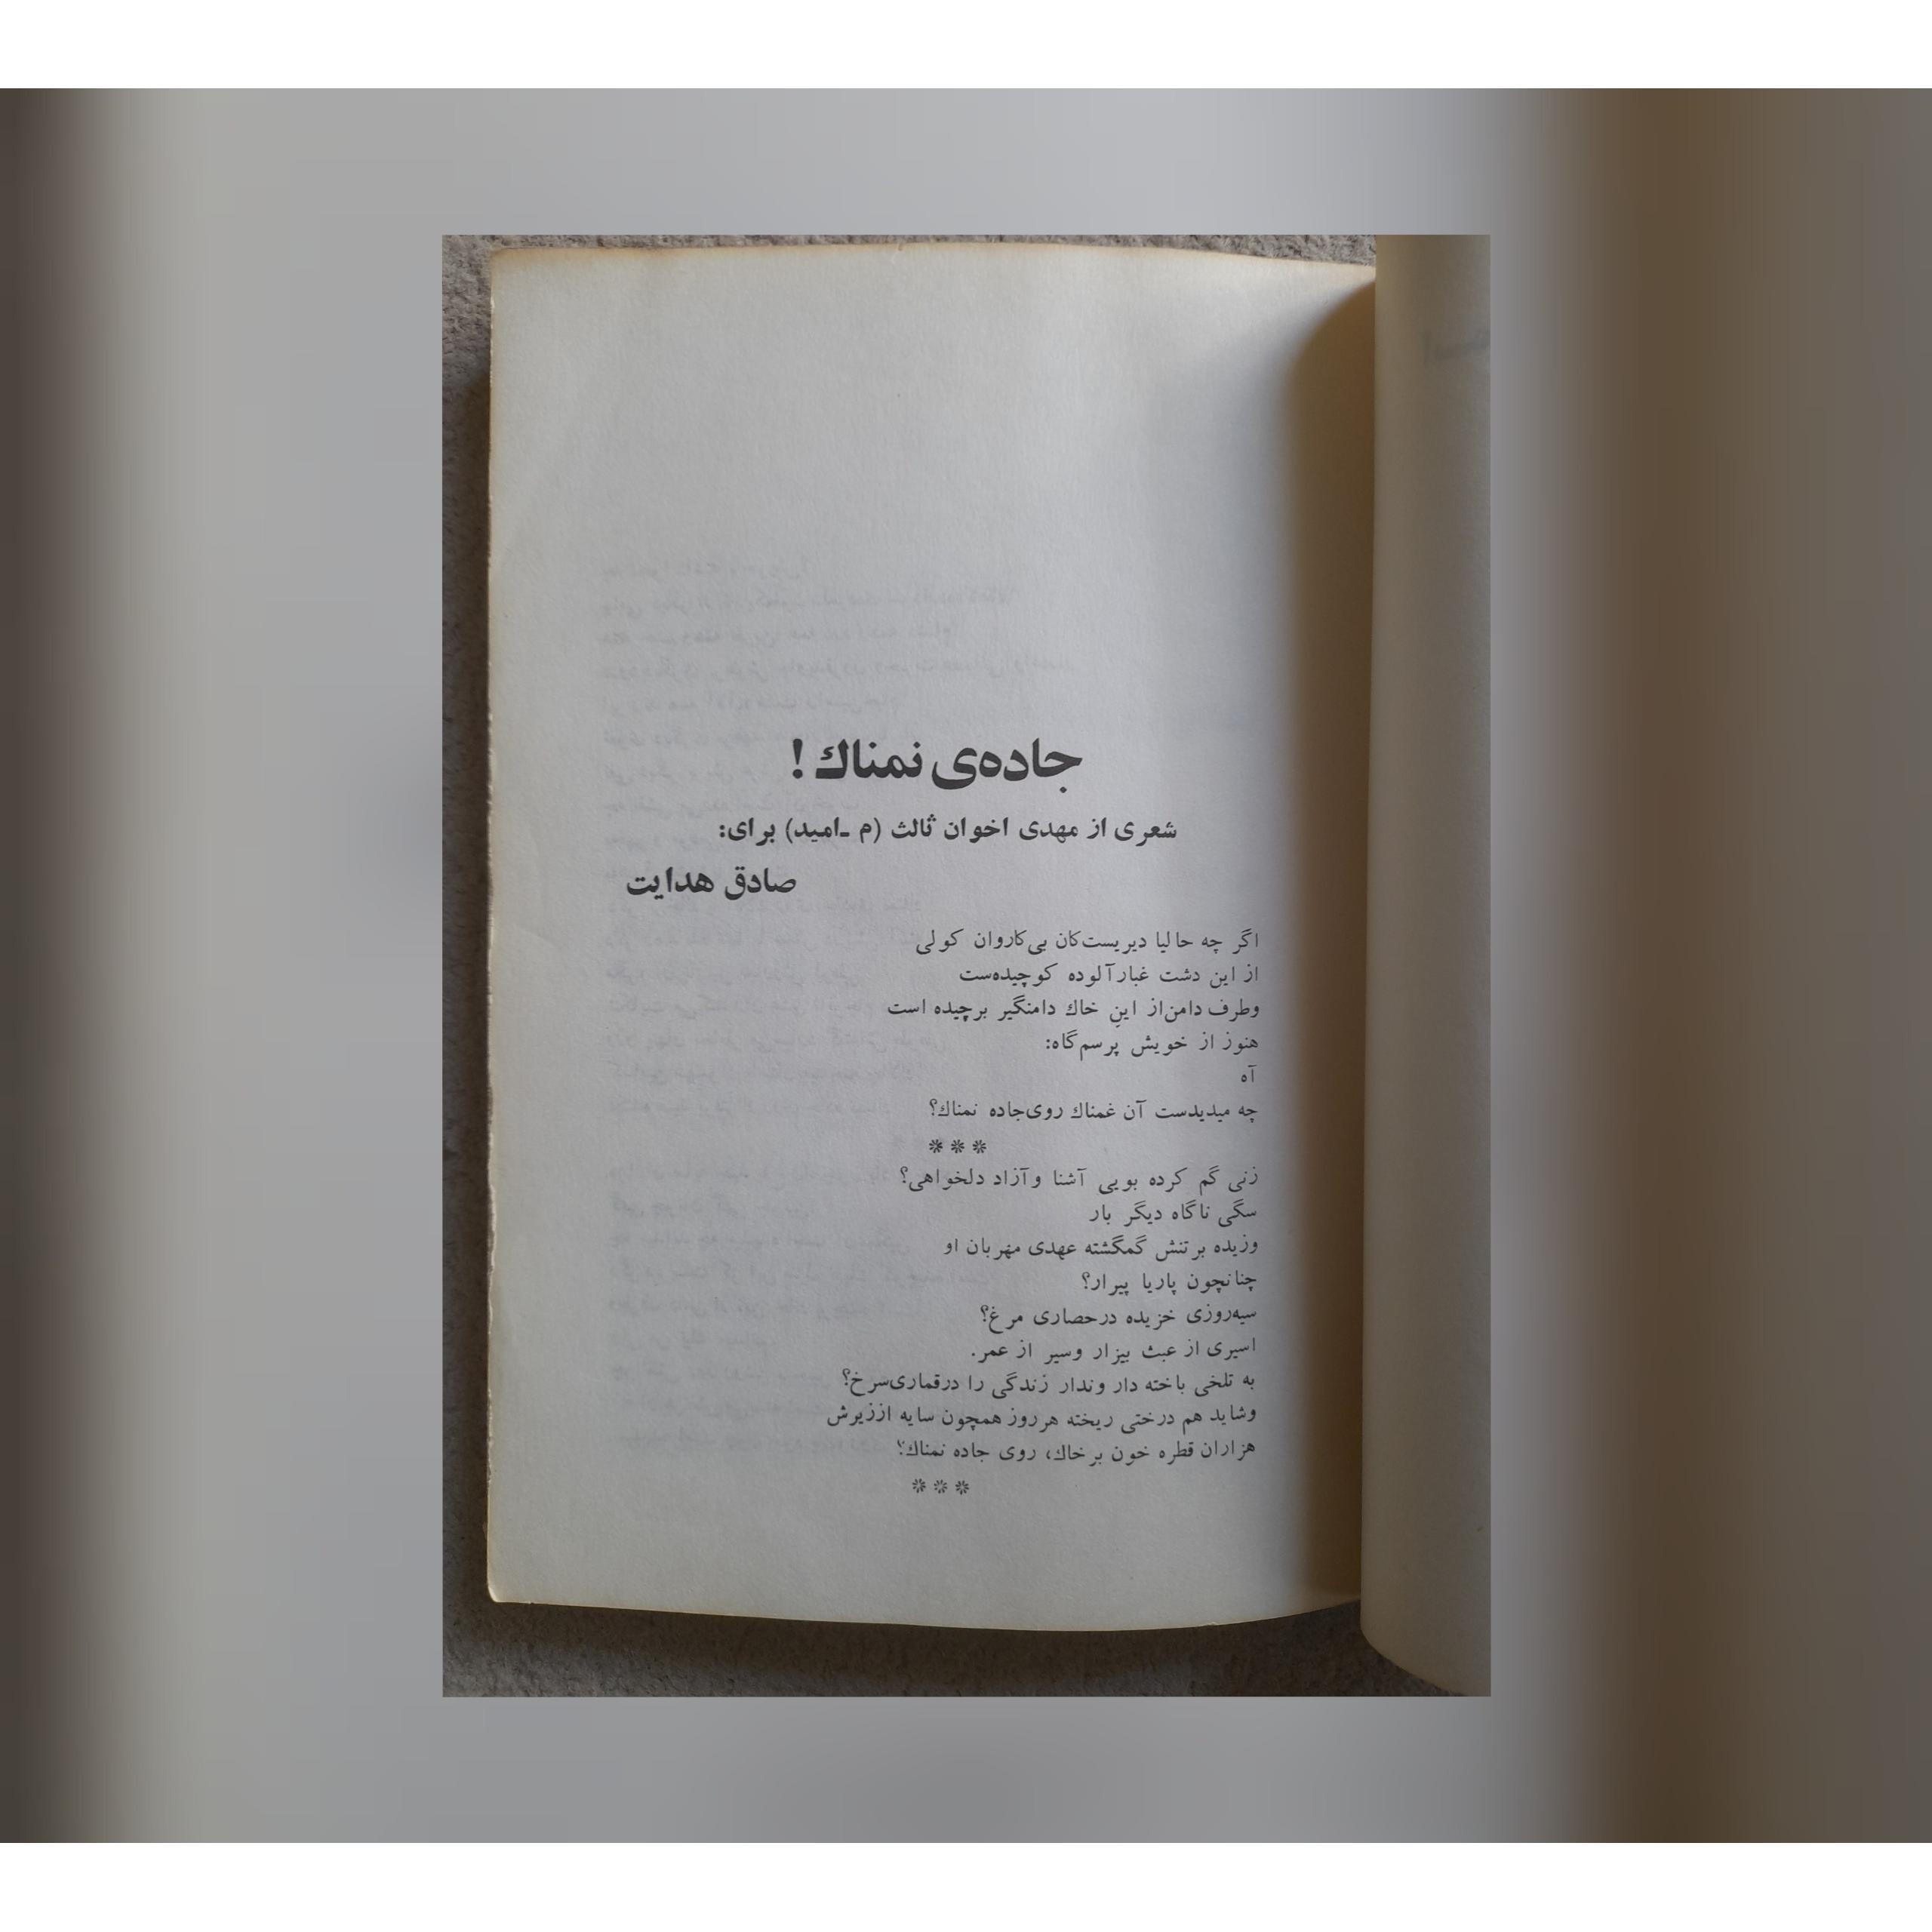 جاده‌ی نمناك!
شعری از مهدی اخوان ثالث (م ـ‌امید) برای:
صادق هدایت
اگر چه حالیا دیریست‌کان بی‌کاروان کولی
از این دشت غبارآلوده کوچیده‌ست
وطرف دامن‌از اینِ خاك دامنگیر برچیده است
هنوز از خویش پرسم‌گاه:
آه
چه میدیدست آن غمناك روی‌جاده نمناك؟
***
زنی گم کرده بویی آشنا وآزاد دلخواهی؟
سگی ناگاه دیگر بار
وزیده برتنش گمگشته عهدی مهربان او
چنانچون پاریا پیرار؟
سیه‌روزی خزیده درحصاری مرغ؟
اسیری از عبث بیزار وسیر از عمر.
به تلخی باخته دار وندار زندگی را درقماری‌سرخ؟
وشاید هم درختی ریخته هرروز همچون سایه اززیرش
هزاران قطره خون برخاك، روی جاده نمناك؟
***